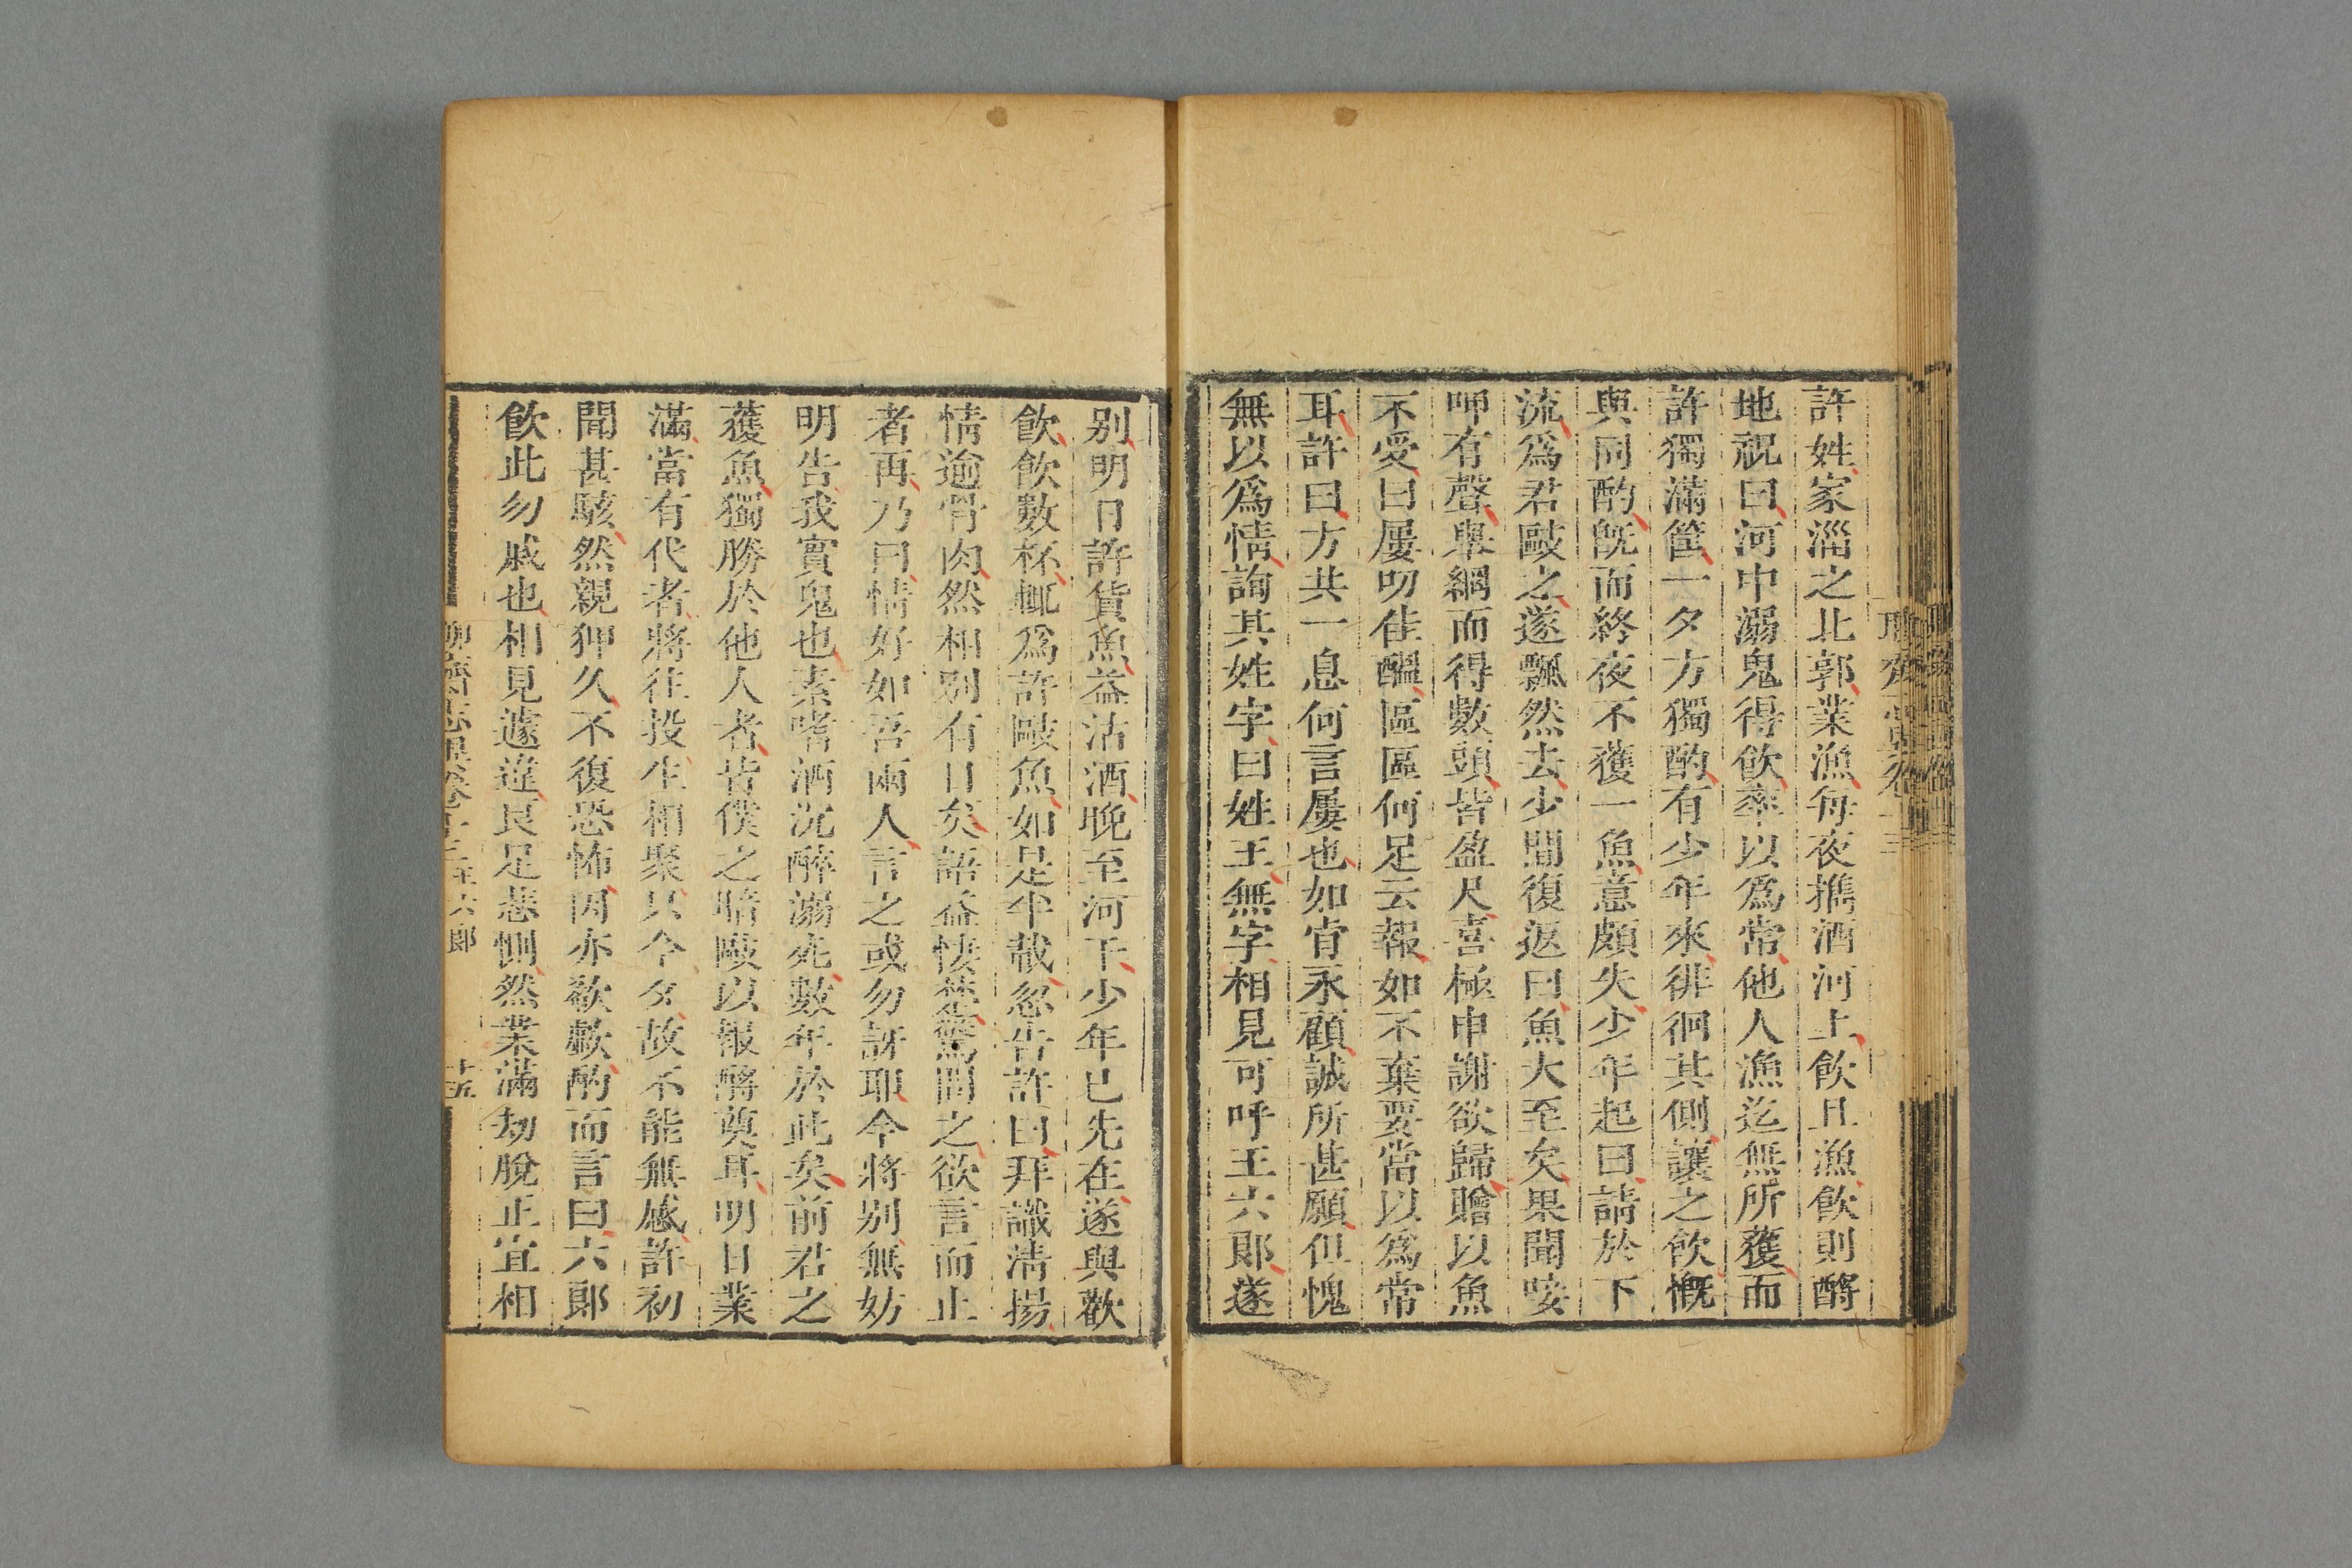 許姓家淄之北郭業漁每夜擕酒河上飲且漁飲則酹
地祝曰河中溺鬼得飲率以爲常他人漁迄無所獲而
許獨滿筐一夕方獨酌有少年來徘徊其側讓之飲慨
與同酌既而終夜不獲一魚意頗失少年起曰請於下
流爲君敺之遂飄然去少間復返曰魚大至矣果聞唼
呷有聲舉網而得數頭皆盈尺喜極申謝欲歸贈以魚
不受曰屢叨佳醞區區何足云報如不棄要當以爲常
耳許曰方共一息何言屢也如肯永顧誠所甚願但愧
無以爲情詢其姓字曰姓王無字相見可呼王六郎遂
别明日許貨魚益沽酒晚至河干少年已先在遂與歡
飲飲數杯輒爲許敺魚如是半載忽告許曰拜識清揚
情逾骨肉然相别有日矣語益悽楚驚問之欲言而止
者再乃曰情好如吾兩人言之或勿訝耶今將别無妨
明告我實鬼也素嗜酒沉醉溺死數年於此矣前君之
獲魚獨勝於他人者皆僕之暗敺以報酹奠耳明日業
滿當有代者將往投生相聚只今夕故不能無感許初
聞甚駭然親狎久不復恐怖因亦欷歔酌而言曰六郎
飲此勿戚也相見遽違良足悲惻然業滿劫脫正宜相
六郎
十五